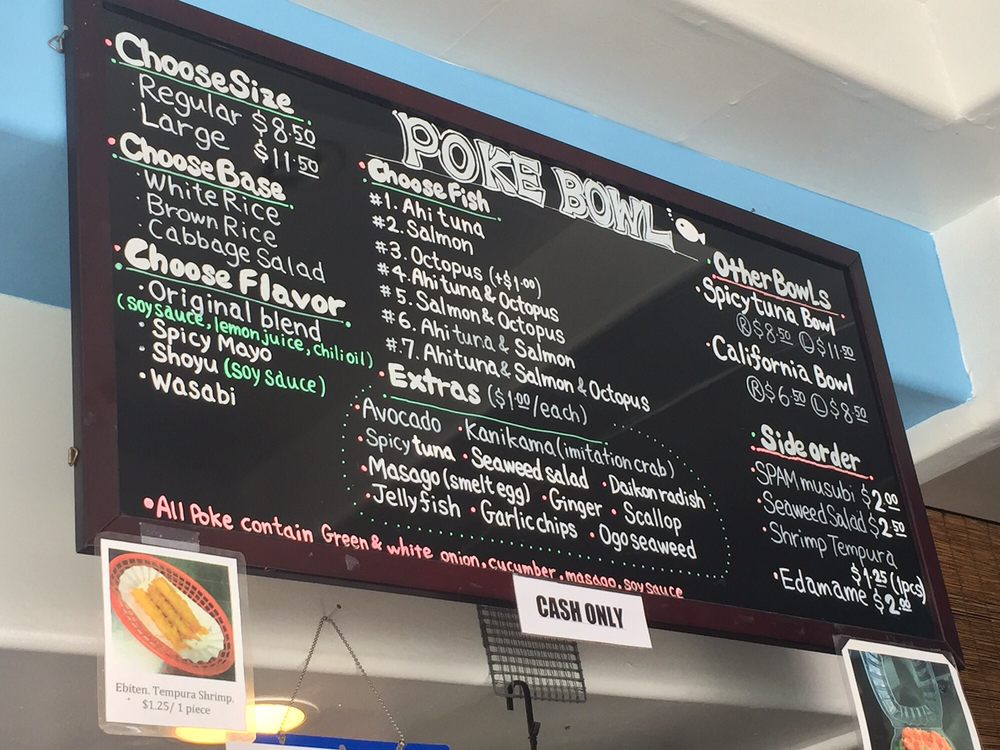 POKE BOWL
• Choose Size
· Regular $8.50
· Large $11.50
• Choose Base
· White Rice
· Brown Rice
· Cabbage Salad
• Choose Flavor
• Original blend
(soy sauce, lemon juice, chili oil)
• Spicy Mayo
• Shoyu (soy sauce)
• Wasabi
• Choose Fish
#1. Ahi tuna
#2. Salmon
#3. Octopus (+$1.00)
#4. Ahi tuna & Octopus
#5. Salmon & Octopus
#6. Ahi tuna & Salmon
#7. Ahi tuna & Salmon & Octopus
• Extras ($1.00/each)
• Avocado • Kanikama (imitation crab)
• Spicy tuna • Seaweed salad • Daikon radish
• Masago (smelt egg) • Ginger • Scallop
• Jellyfish • Garlic chips • Ogo seaweed
• Other Bowls
• Spicy tuna Bowl
Ⓡ $8.50 Ⓛ $11.50
• California Bowl
Ⓡ $6.50 Ⓛ $8.50
• Side order
• SPAM musubi $2.00
• Seaweed Salad $2.50
• Shrimp Tempura
$1.25 (1pcs)
• Edamame $2.00
• All Poke contain Green & white onion, cucumber, masago, soy sauce
CASH ONLY
Ebiten. Tempura Shrimp.
$1.25/ 1 piece